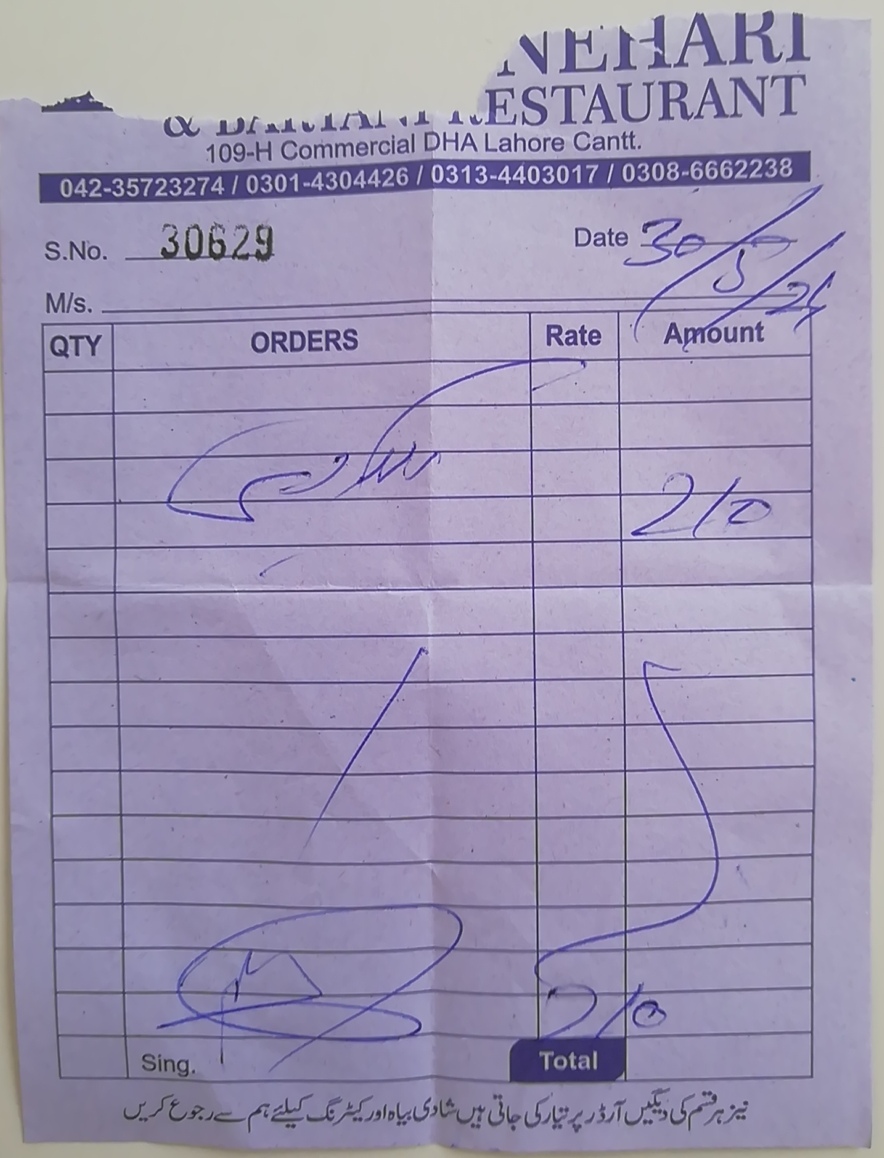 NEHARI
& BARIANI RESTAURANT
109-H Commercial DHA Lahore Cantt.
042-35723274 / 0301-4304426 / 0313-4403017 / 0308-6662238
S.No. 30629 Date 30/5/21
M/s.
QTY ORDERS Rate Amount
210
210
Sing. Total
نیز ہر قسم کی دیگیں آرڈر پر تیار کی جاتی ہیں شادی بیاہ اور کیٹرنگ کیلئے ہم سے رجوع کریں